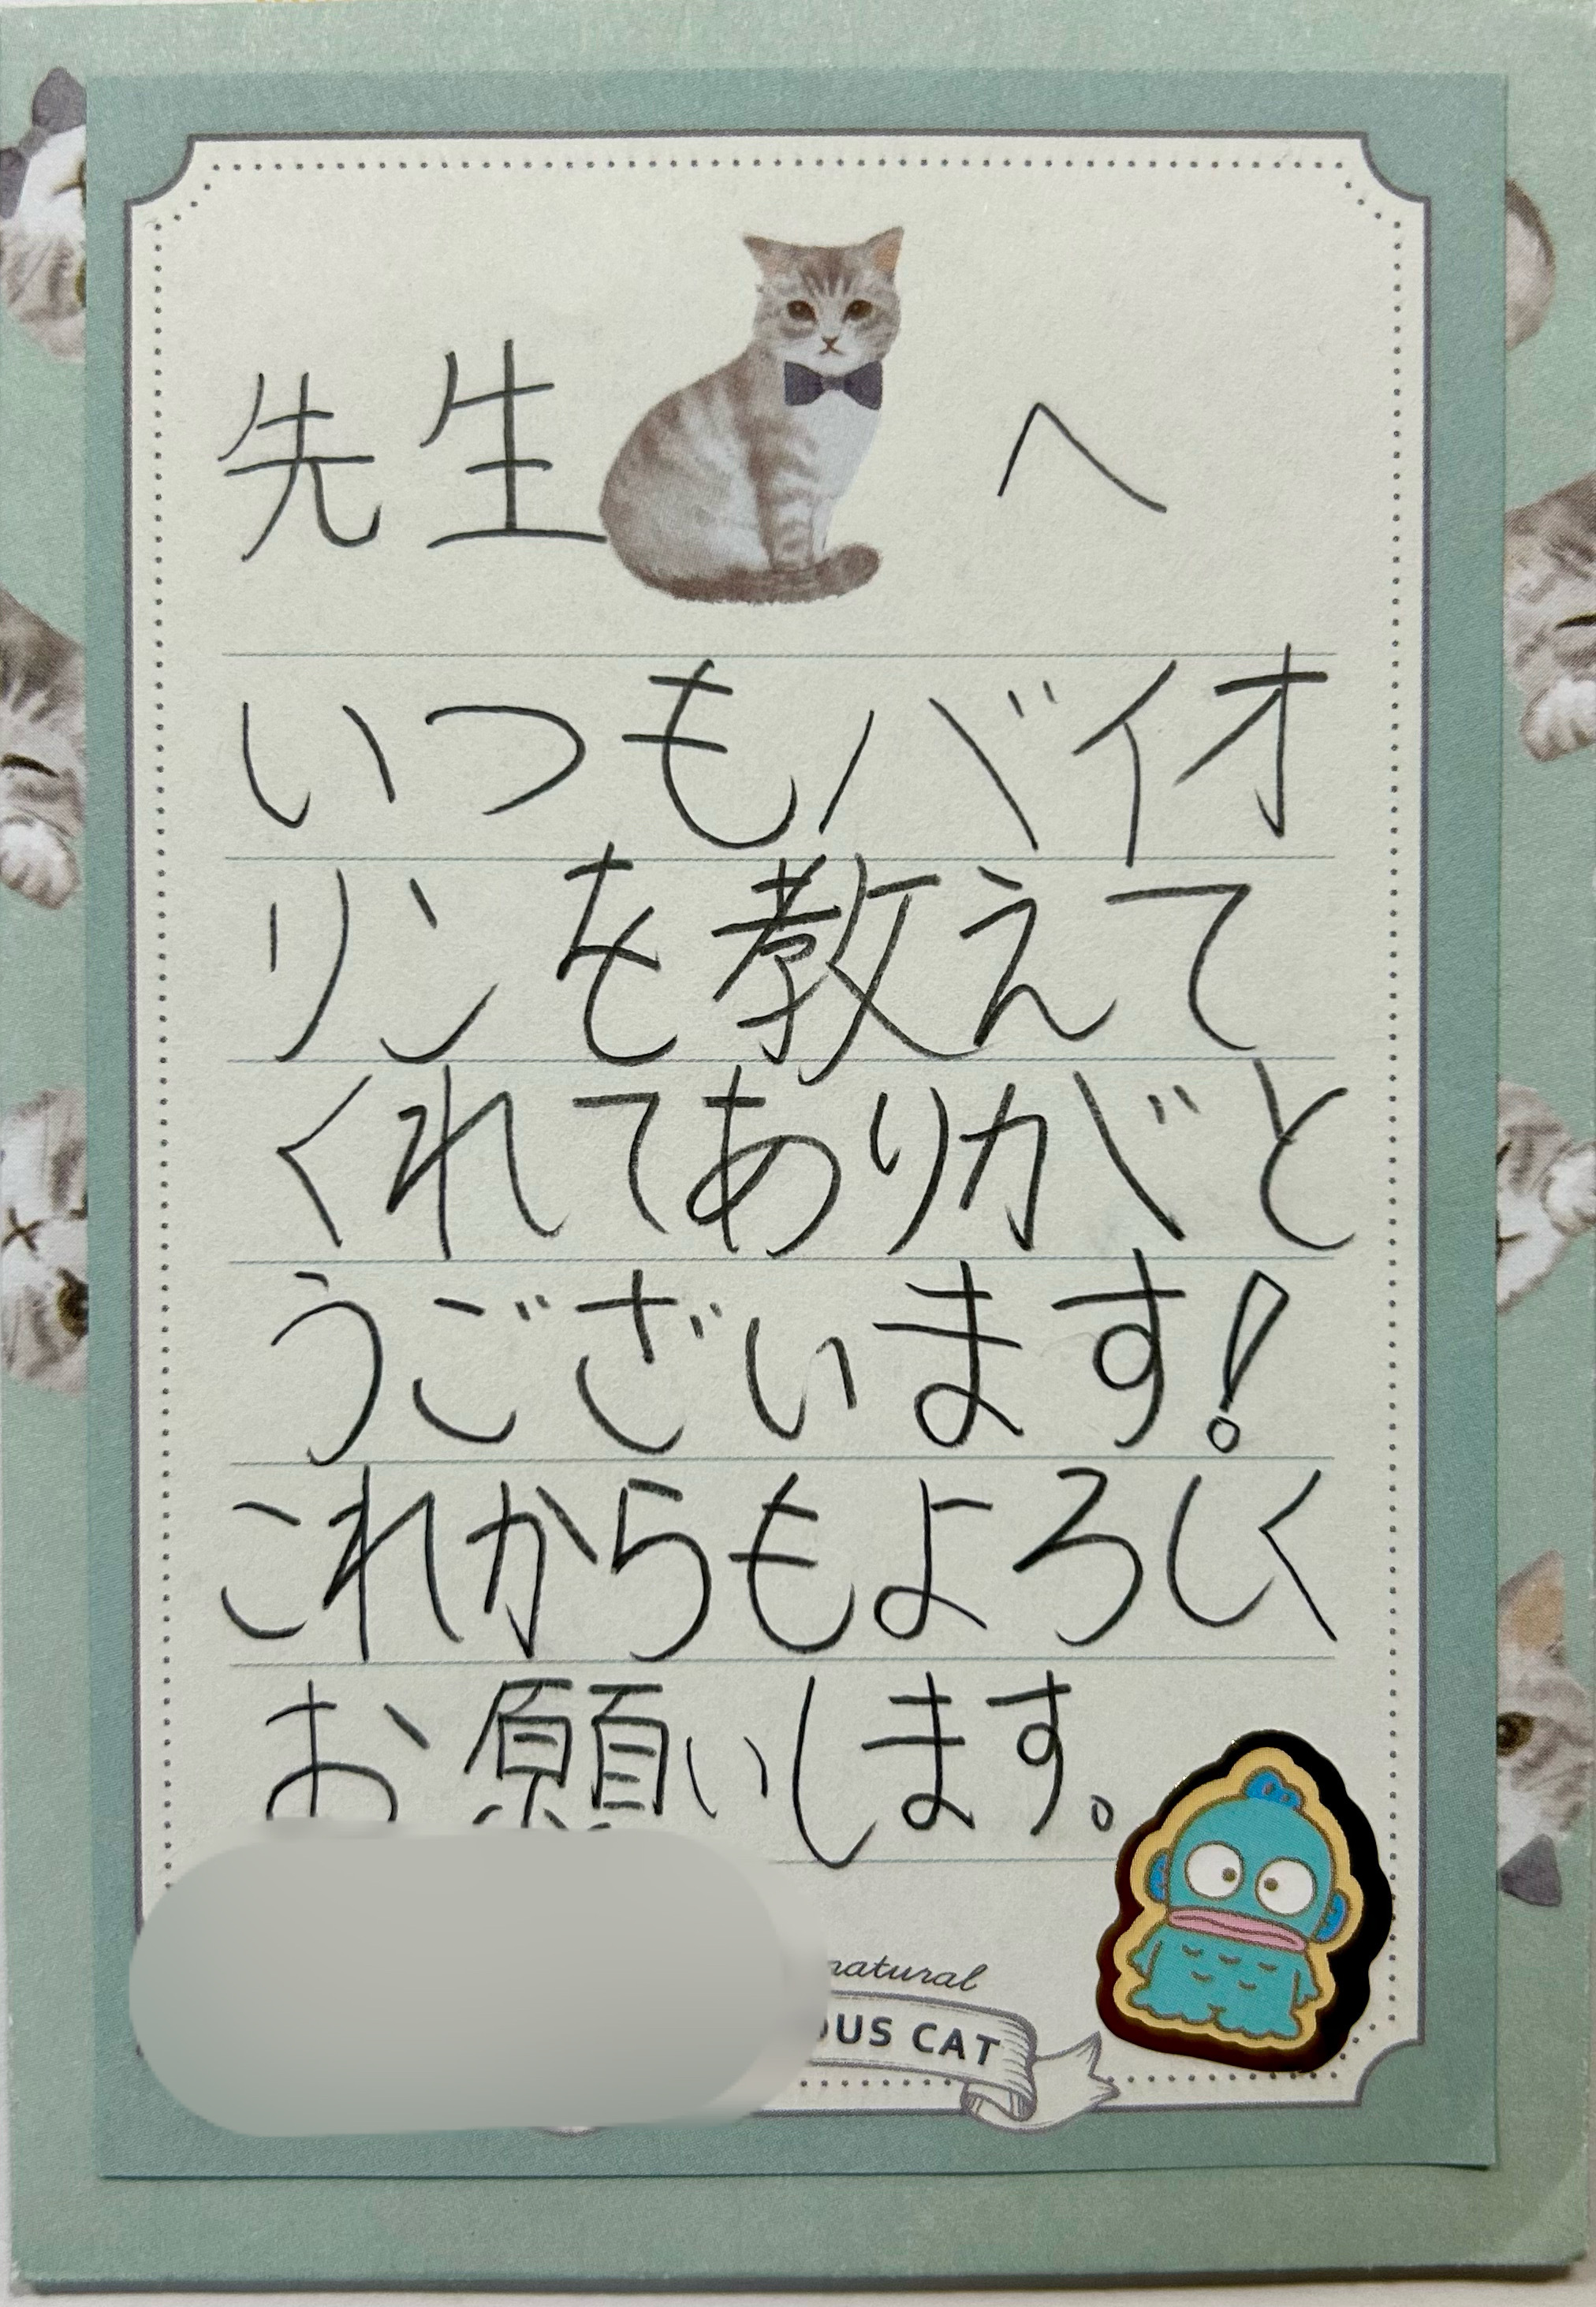 先生 へ
いつもバイオ
リンを教えて
くれてありがと
うございます!
これからもよろしく
お願いします。
natural
OUS CAT